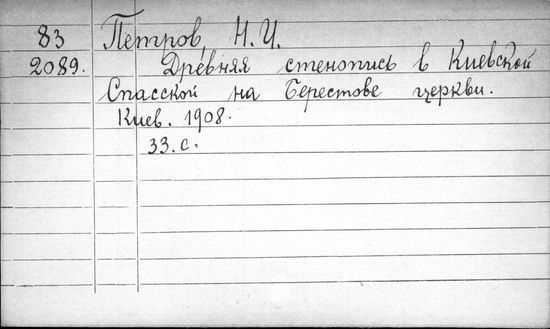 83 Петров, Н.И.
2089. Древняя стенопись в Киевской
Спасской на Берестове церкви.
Киев. 1908.
33.с.